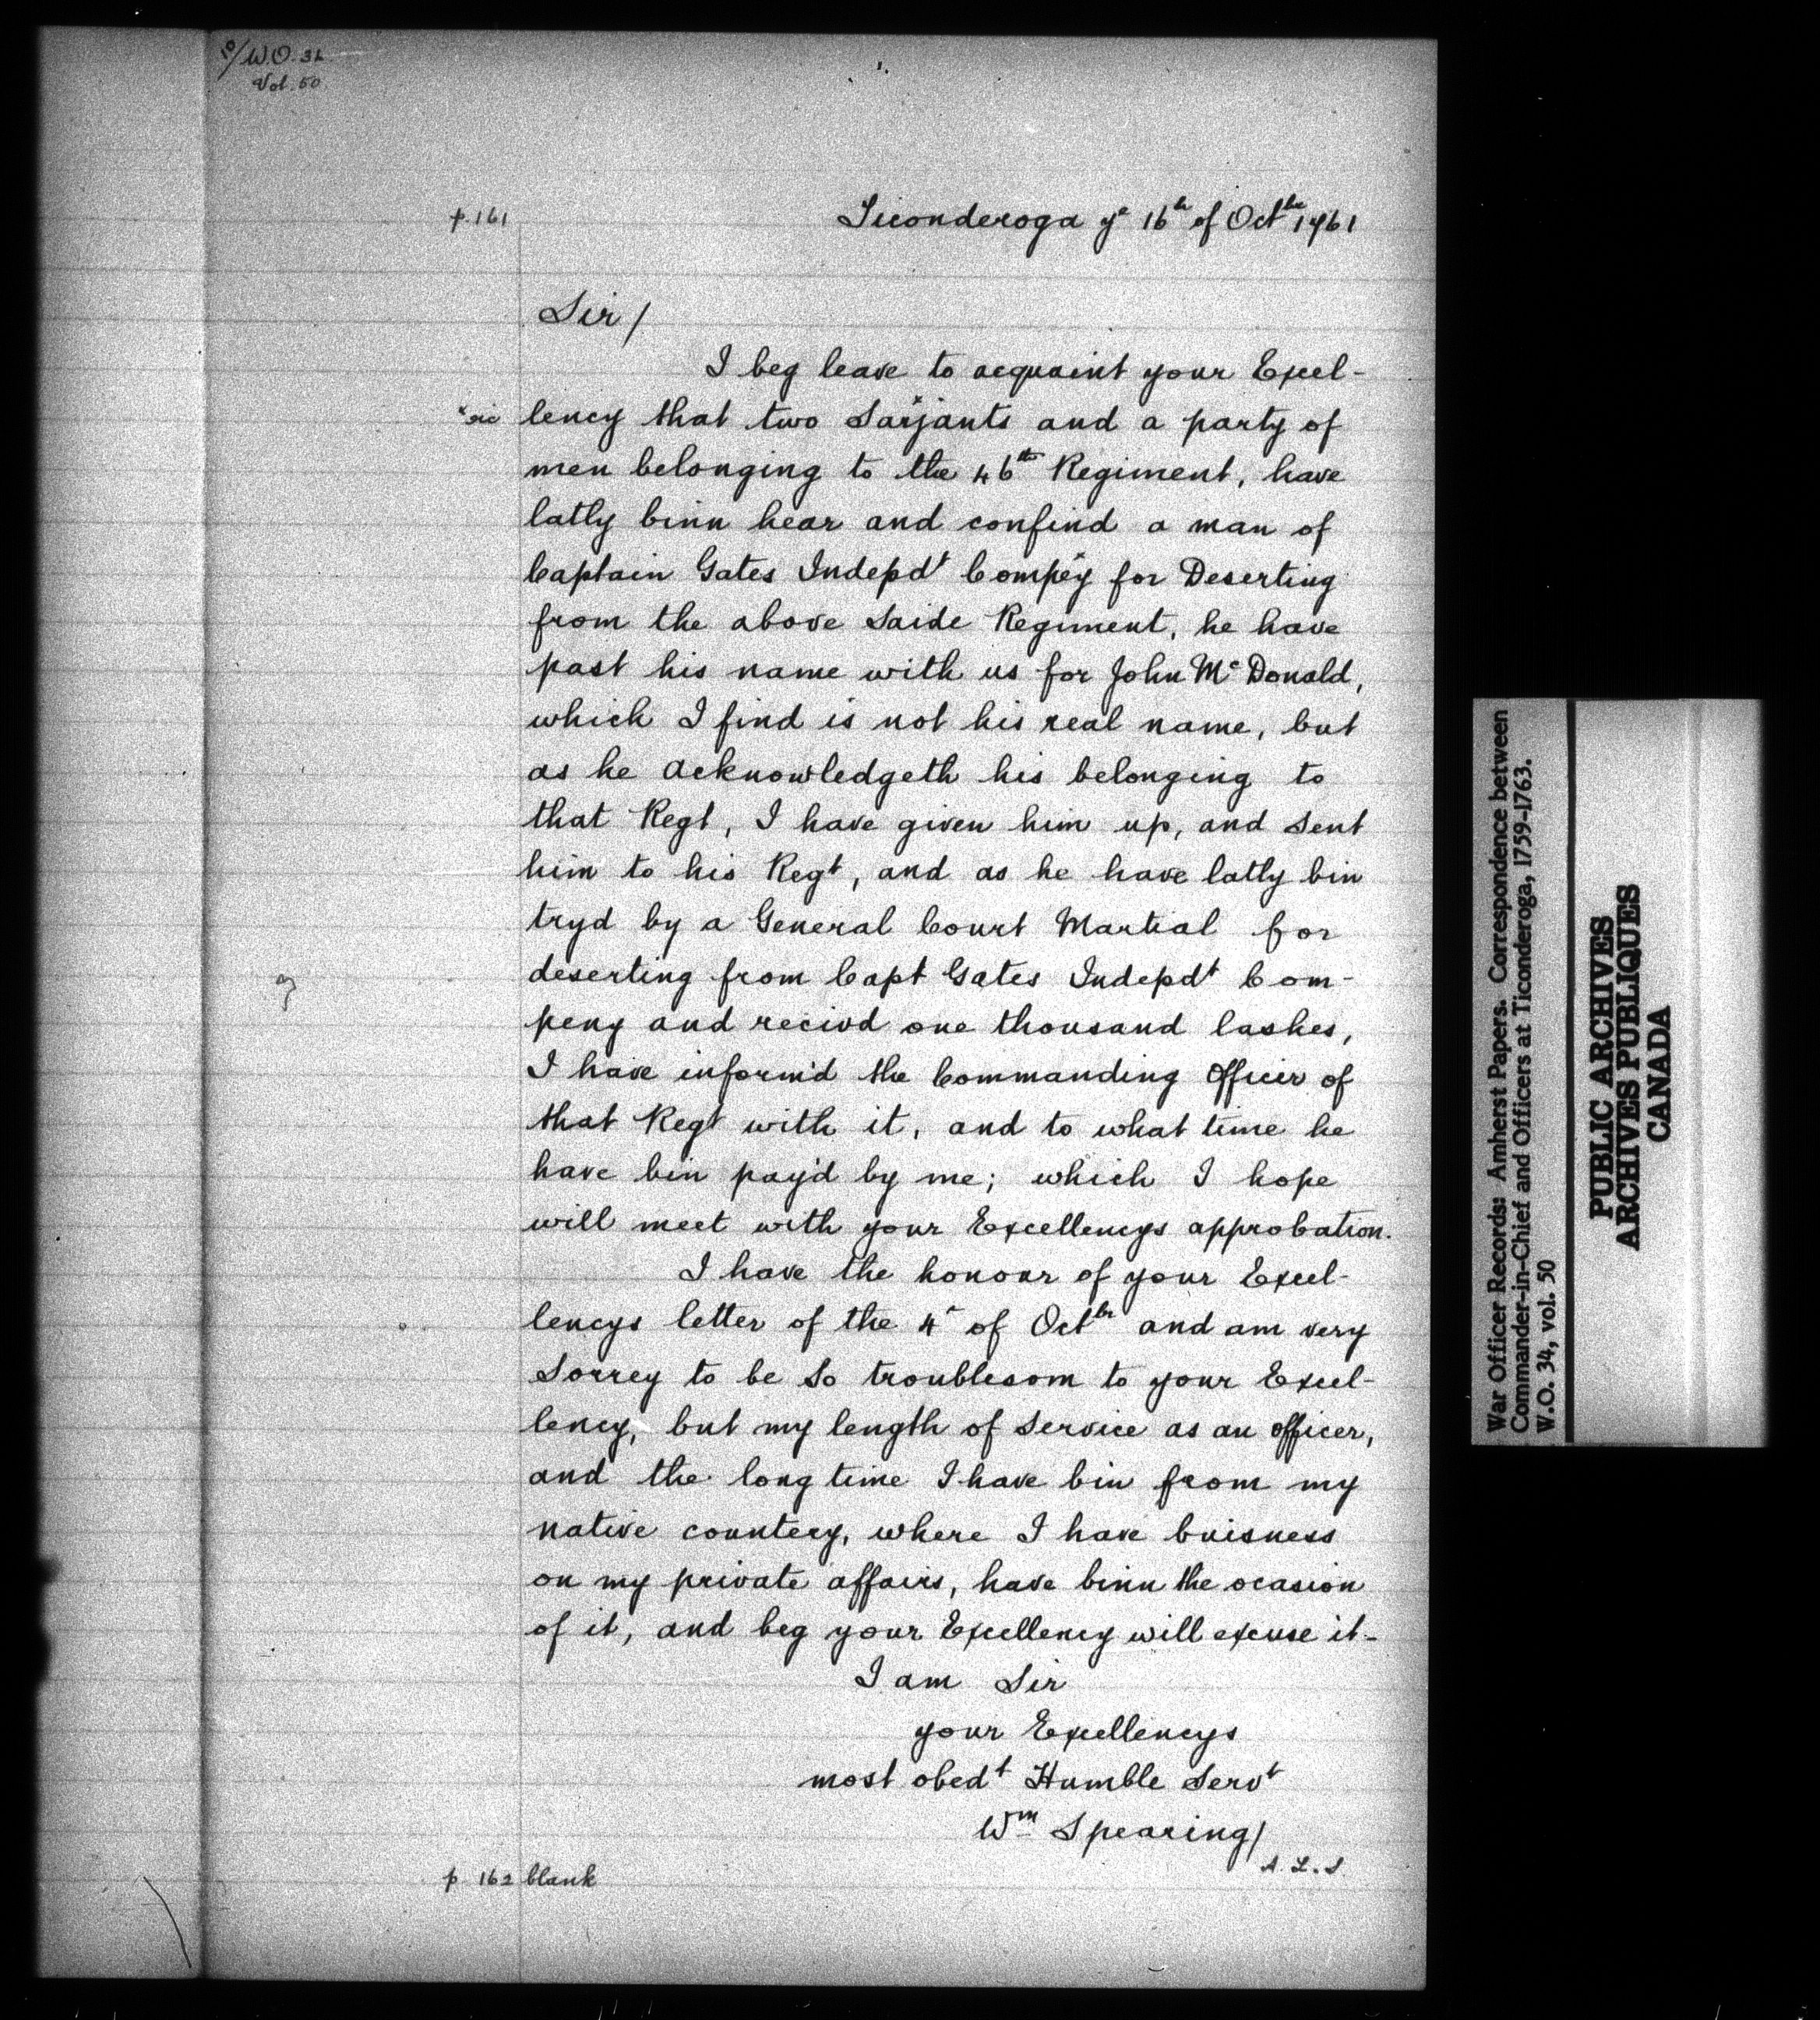 W.O. 34
Vol. 50
p. 161
Ticonderoga yᵉ 16ᵗʰ of Octᵇᵉʳ 1761
Sir/
I beg leave to acquaint your Excel-
ˣsic lency that two Sarˣjants and a party of
men belonging to the 46ᵗʰ Regiment, have
latly binn hear and confind a man of
Captain Gates Indepdᵗ Compẽy for Deserting
from the above Saide Regiment, he have
past his name with us for John Mᶜ Donald,
which I find is not his real name, but
as he acknowledgeth his belonging to
that Regt, I have given him up, and sent
him to his Regᵗ, and as he have latly bin
tryd by a General Court Martial for
deserting from Capt Gates Indepdᵗ Com-
peny and recivd one thousand lashes,
I have inform'd the Commanding Officer of
that Regᵗ with it, and to what time he
have bin pay'd by me; which I hope
will meet with your Excellencys approbation.
I have the honour of your Excel-
lencys letter of the 4ᵗ of Octᵇʳ and am very
Sorrey to be so troublesom to your Excel-
lency, but my length of service as an officer,
and the long time I have bin from my
native countery, where I have buisness
on my private affairs, have binn the ocasion
of it, and beg your Excellency will excuse it-
I am Sir
your Excellencys
most obedᵗ Humble Servᵗ
Wᵐ Spearing/
A. L. S.
p 162 blank
War Officer Records: Amherst Papers. Correspondence between
Commander-in-Chief and Officers at Ticonderoga, 1759-1763.
W.O. 34, vol. 50
PUBLIC ARCHIVES
ARCHIVES PUBLIQUES
CANADA